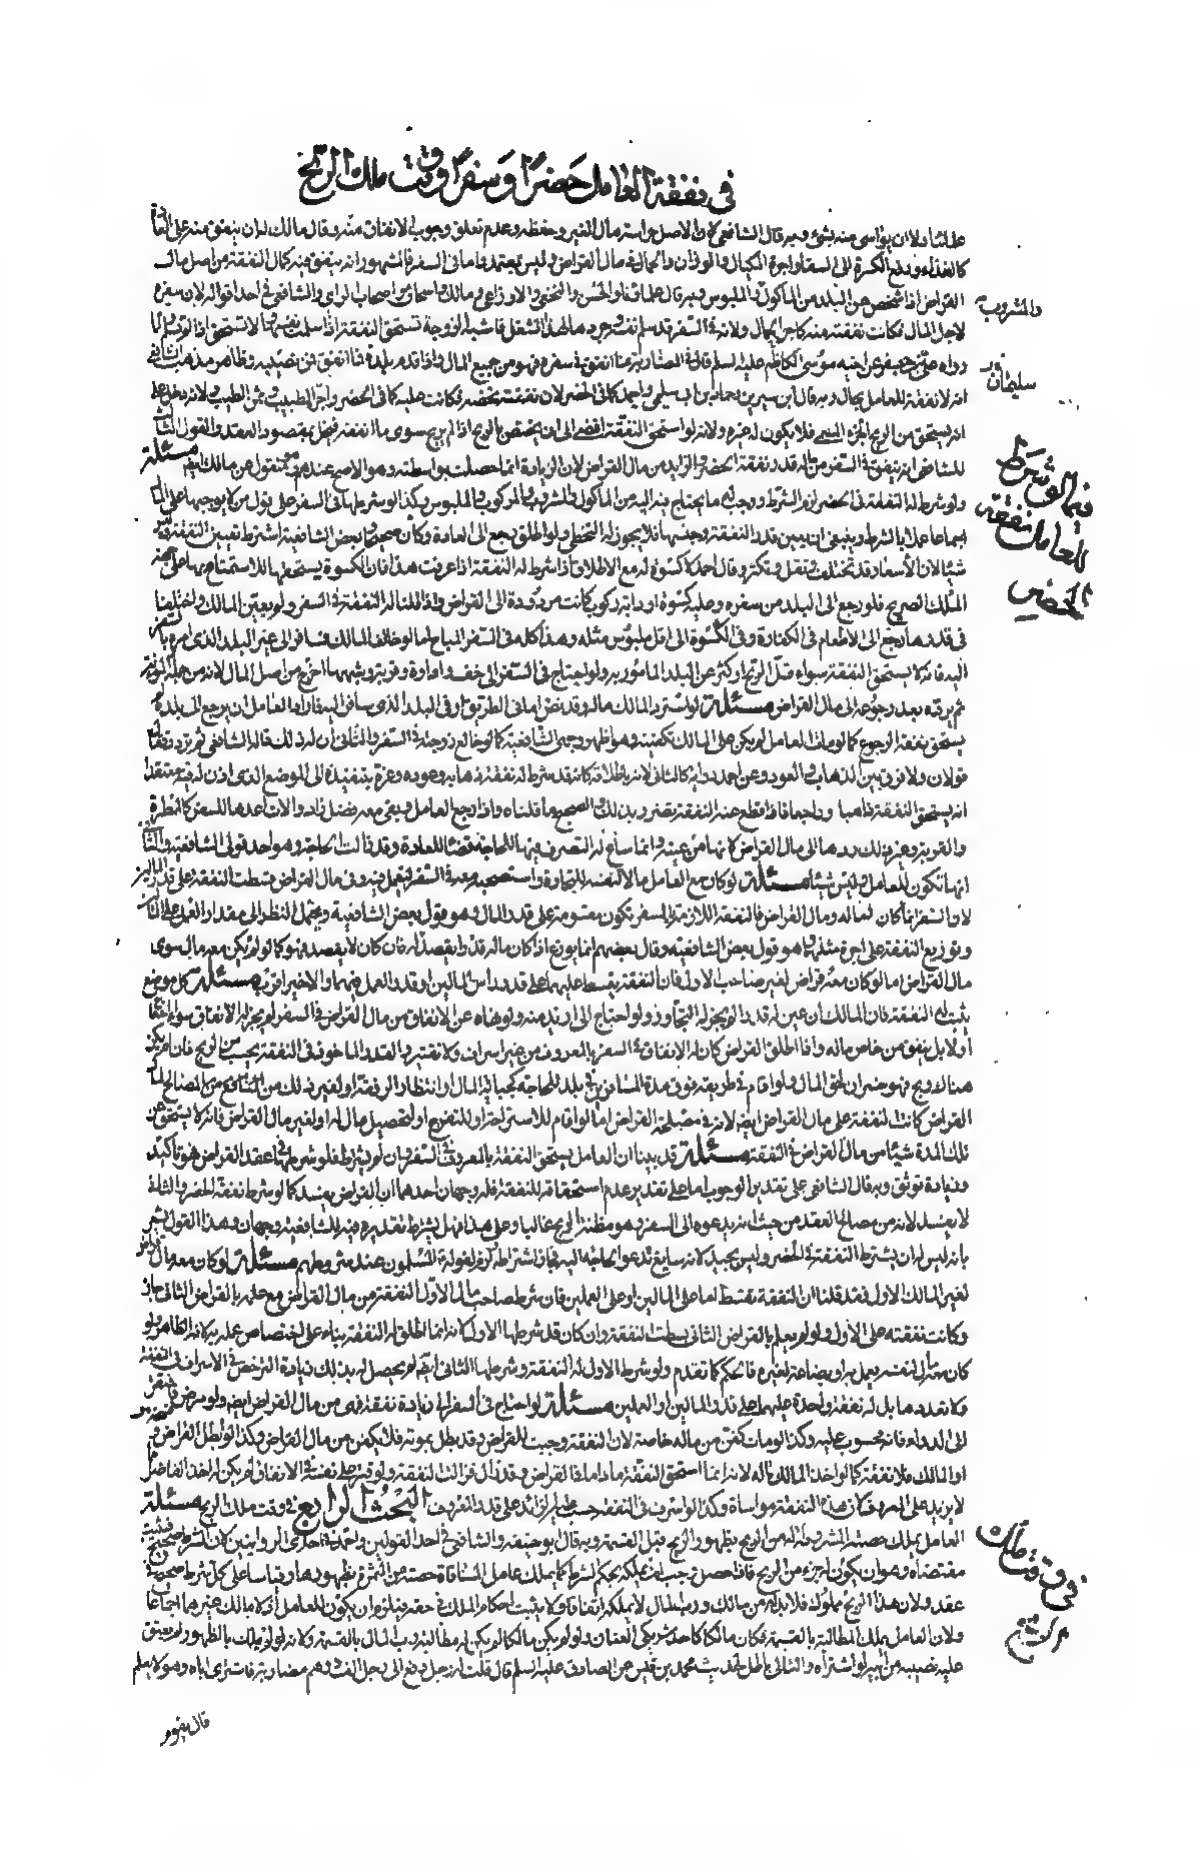 في نفقة العامل حضرًا وسفرًا ووقت ملك الربح
علمائنا ولا ان يواسي منه بشئ وبه قال الشافعي لان الاصل حراسة مال الغير وحفظه وعدم تعلق وجوب الانفاق منه وقال مالك له ان ينفق منه على العادة
كالغداء ودفع الكسرة الى السقاء واجرة الكيال والوزان والحمال في مال القراض وليس بمعتمد واما في السفر فالمشهور انه ينفق فيه كمال النفقة من اصل مال
القراض اذا شخص عن البلد من المأكول والملبوس وبه قال علماؤنا والحسن والنخعي والاوزاعي ومالك واسحاق من اصحاب الراي والشافعي في احد اقواله لان سفره
والمشروب
لاجل المال فكانت نفقته منه كاجر الحمال ولانه في السفر قد سلم نفسه وجردها لهذا الشغل فاشبه الزوجة تستحق النفقة اذا سلمت نفسها ولا تستحق اذا لم تسلم ولما
رواه علي بن جعفر عن اخيه موسى الكاظم عليه السلم قال في المضاربة ما انفق في سفره فهو من جميع المال واذا قدم بلدة فما انفق فمن نصيبه وظاهر مذهب الشافعي
انه لا نفقة للعامل بحال وبه قال ابن سيرين وحماد بن ابي سليمان واحمد كما في الحضر لان نفقته تخصه فكانت عليه كما في الحضر واجر الطبيب وثمن الطيب ولانه دخل على
انه يستحق من الربح الجزء المسمى فلا يكون له غيره ولانه لو استحق النفقة افضى الى ان يختص بالربح اذا لم يربح سوى ما انفقه فيخل بمقصود العقد والقول الثالث
للشافعي انه ينفق في السفر من ماله قدر نفقة الحضر والزايد من مال القراض لان الزيادة انما حصلت بواسطته وهو الاصح عندهم ومنقول عن مالك ايضا مسئلة
ولو شرط له النفقة في الحضر لزم الشرط ووجب له ما يحتاج فيه اليه من المأكول والمشروب والمركوب والملبوس وكذا لو شرطها في السفر على قول من لا يوجبها على المالك
اجماعا عملا بالشرط وينبغي ان يعين قدر النفقة وجنسها فلا يجوز له التخطي ولو اطلق رجع الى العادة وكان صحيحا وبعض الشافعية اشترط تعيين النفقة
فيما لو شرط
للعامل نفقة
الحضر
شيئا لان الاسعار قد تختلف فتقل وتكثر وقال احمد لا كسوة له مع الاطلاق اذا شرط له النفقة اذا عرفت هذا فان الكسوة يستحقها للاستمتاع بها على
الملك الصريح فلو رجع الى البلد من سفره وعليه كسوة او دابة ركوب كانت مردودة الى القراض واذا قلنا له النفقة في السفر ولو يعين المالك واختلفا
في قدرها رجع الى الاطعام في الكفارة وفي الكسوة الى اقل ملبوس مثله وهذا كله في السفر المباح اما لو خالف المالك فسافر الى غير البلد الذي امره بالسفر
اليه فانه لا يستحق النفقة سواء قل الربح او كثر عن البلد المأمور به ولو احتاج في السفر الى خف واداوة وقربة وشبهها اخرج من اصل المال لانه من جملة المؤنة
ثم يرده بعد رجوعه الى مال القراض مسئلة لو استرد المالك ماله وقد نض اما في الطريق او في البلد الذي سافر اليه فاراد العامل ان يرجع الى بلده لم
يستحق نفقة الرجوع كما لو مات العامل لم يكن على المالك تكفينه وهو اظهر وجهي الشافعية كما لو خالع زوجته في السفر والثاني ان له ذلك قاله الشافعي ثم تردد وقال
قولان ولا فرق بين الذهاب والعود وعن احمد رواية كالثاني لانه باطلاقه كانه قد شرط له نفقة ذهابه وعوده وغره بتنفيذه الى الموضع الذي اذن له فيه معتقدا
انه يستحق النفقة ذاهبا وراجعا فاذا قطع عنه النفقة تضرر بذلك والصحيح ما قلناه واذا رجع العامل وبقي معه فضل زاد والات اعدها للسفر كالمطهرة
والقربة وغير ذلك ردها الى مال القراض لانها من عينه وانما ساغ له التصرف فيها للحاجة قضاء للعادة وقد زالت الحاجة وهو احد قولي الشافعية والثاني
انها تكون للعامل وليس شيئا مسئلة لو كان مع العامل مال لنفسه للتجارة واستصحبه معه في السفر ليعمل فيه وفي مال القراض قسطت النفقة على قدر المالين
لان السفر انما كان لماله ومال القراض فالنفقة اللازمة للسفر تكون مقسومة على قدر المال وهو قول بعض الشافعية ويحتمل النظر الى مقدار العمل على المالين
وتوزيع النفقة على اجرة مثلهما وهو قول بعض الشافعية وقال بعضهم انما يوزع اذا كان ماله قدرا يقصد له فان كان لا يقصد فهو كما لو لم يكن معه مال سوى
مال القراض اما لو كان معه قراض لغير صاحب الاول فان النفقة تقسط عليهما على قدر راس المالين او قدر العمل فيهما والاخير اقرب مسئلة كل موضع
يثبت له النفقة فان المالك ان عين له قدرا لم يجز له التجاوز ولو احتاج الى ازيد منه ولو نهاه عن الانفاق من مال القراض في السفر لم يجز له الانفاق سواء احتاج
اولا بل ينفق من خاص ماله واذا اطلق القراض كان له الانفاق في السفر بالمعروف من غير اسراف ولا تقتير والقدر المأخوذ في النفقة يحسب من الربح فان لم يكن
هناك ربح فهو خسران لحق المال ولو اقام في طريقه فوق مدة المسافرين في بلد للحاجة كجباية المال او انتظار الرفقة او لغير ذلك من المصالح لمال
القراض كانت النفقة على مال القراض ايضا لانه في مصلحة القراض اما لو اقام للاستراحة او للتفرج او لتحصيل مال له او لغير مال القراض فانه لا يستحق عن
تلك المدة شيئا من مال القراض في النفقة مسئلة قد بينا ان العامل يستحق النفقة بالمعروف في السفر وان لم يشترط فلو شرطها في عقد القراض فهو تأكيد
وزيادة توثق وبه قال الشافعي على تقدير الوجوب اما على تقدير عدم استحقاقه للنفقة فله وجهان احدهما ان القراض يفسد كما لو شرط نفقة الحضر والثاني
لا يفسد لانه من مصالح العقد من حيث انه يدعوه الى السفر وهو مظنة الربح غالبا وعلى هذا فهل يشترط تقديره فيه للشافعية وجهان وهذا القول يشعر
بانه ليس له ان يشترط النفقة في الحضر وليس بجيد لانه سايغ تدعوا الحاجة اليه فجاز اشتراطه كغيره لقوله المسلمون عند شروطهم مسئلة لو كان معه مال قراض
لغير المالك الاول فقد قلنا ان النفقة تقسط اما على المالين او على العملين فان شرط صاحب المال الاول النفقة من مال القراض مع علمه بالقراض الثاني جاز
وكانت نفقته على الاول ولو لم يعلم بالقراض الثاني بسطت النفقة وان كان قد شرطها الاول لانه انما اطلق له النفقة بناء على اختصاص عمله به لانه الظاهر ولو
كان معه مال لنفسه يعمل به او بضاعة لغيره فالحكم كما تقدم ولو شرط الاول له النفقة وشرطها الثاني ايضا لم يحصل له بذلك زيادة الترخص في الاسراف في النفقة
ولا تعددها بل له نفقة واحدة عليهما على قدر المالين او العملين مسئلة لو احتاج في السفر الى زيادة نفقة فهي من مال القراض ايضا ولو مرض فافتقر
الى الدواء فانه محسوب عليه وكذا لو مات كفن من ماله خاصة لان النفقة وجبت للقراض وقد بطل بموته فلا يكفن من مال القراض وكذا لو ابطل القراض هو
او المالك فلا نفقة كما لو اخذ المالك ماله لانه انما استحق النفقة ماداما في القراض وقد زال فزالت النفقة ولو قتر على نفسه في الانفاق لم يكن له اخذ الفاضل مما
لا يزيد على المعروف لان هذه النفقة مواساة وكذا لو اسرف في النفقة حسب عليه الزائد على قدر المعروف البحث الرابع في وقت ملك الربح مسئلة
العامل يملك حصته المشروطة له من الربح بظهور الربح قبل القسمة وبه قال ابو حنيفة والشافعي في احد القولين واحمد في احدى الروايتين لان الشرط صحيح فيثبت
مقتضاه وهو ان يكون له جزء من الربح فاذا حصل وجب ان يملكه بحكم الشرط كما يملك عامل المساقاة حصته من الثمرة بظهورها وقياسا على كل شرط صحيح في
عقد ولان هذا الربح مملوك فلابد له من مالك ورب المال لا يملكه اتفاقا ولا يثبت احكام الملك في حقه فيلزم ان يكون للعامل اذ لا مالك غيرهما اجماعا
ولان العامل يملك المطالبة بالقسمة فكان مالكا كاحد شريكي العنان ولو لم يكن مالكا لم يكن له مطالبة رب المال بالقسمة ولانه لو لم يملك بالظهور لم يعتق
عليه نصيبه من ابيه لو اشتراه والتالي باطل لحديث محمد بن قيس عن الصادق عليه السلم قال قلت له رجل دفع الى رجل الف درهم مضاربة فاشترى اباه وهو لا يعلم
في وقت ملك
الربح
قال يقوم